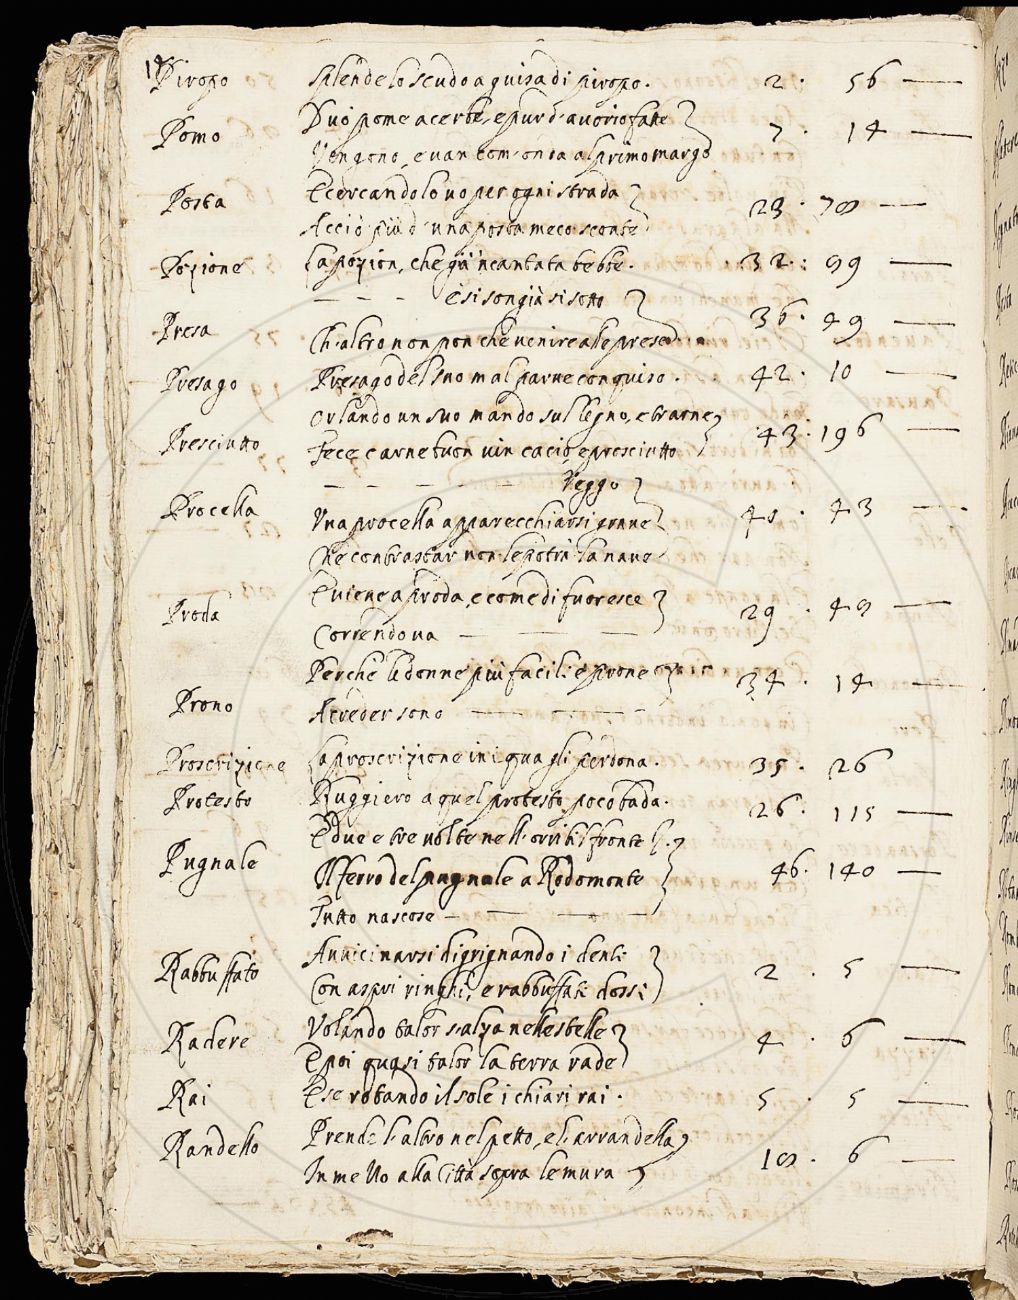 Piropo Splende lo scudo a guisa di piropo. 2. 56 —
Duo pome acerbe, e pur d'avorio fatte
Pomo 7. 14 —
Vengono, e van com'onda al primo margo
E cercandolo vo per ogni strada
Posta 23. 78 —
Acciò più d'una posta meco sconte
Pozione La pozion, che già 'ncantata bebbe. 32. 99 —
— — — E si son già sì sotto
Presa 36. 49 —
Ch'altro non pon che venire alle prese
Presago Presago del suo mal parve conquiso. 42. 10 —
Orlando un suo mandò sul legno, e trarne
Presciutto 43. 196 —
Fece carne buon vin cacio, e presciutto
— — — — — Veggo
Procella 41. 43 —
Una procella apparecchiarsi grave
Che contrastar non le potrà la nave
E viene a proda, e come di fuor esce
Proda 29. 48 —
Correndo va — — —
Perchè le donne più facili e prone
Prono 34. 14 —
A creder sono — — —
Proscrizione La proscrizione iniqua gli perdona. 35. 26
Protesto Ruggiero a quel protesto poco bada. 26. 115 —
E due e tre volte nell'orribil fronte
Pugnale Il ferro del pugnale a Rodomonte 46. 140 —
Tutto nascose — — — —
Avvicinarsi digrignando i denti
Rabbuffato 2. 5 —
Con aspri ringhi, e rabbuffati dossi
Volando talor s'alza nelle stelle
Radere 4. 6 —
E poi quasi talor la terra rade
Rai E se rotando il sole i chiari rai. 5. 5 —
Prende l'altro nel petto, e l'arrandella
Randello 18. 6 —
In mezzo alla Città sopra le mura